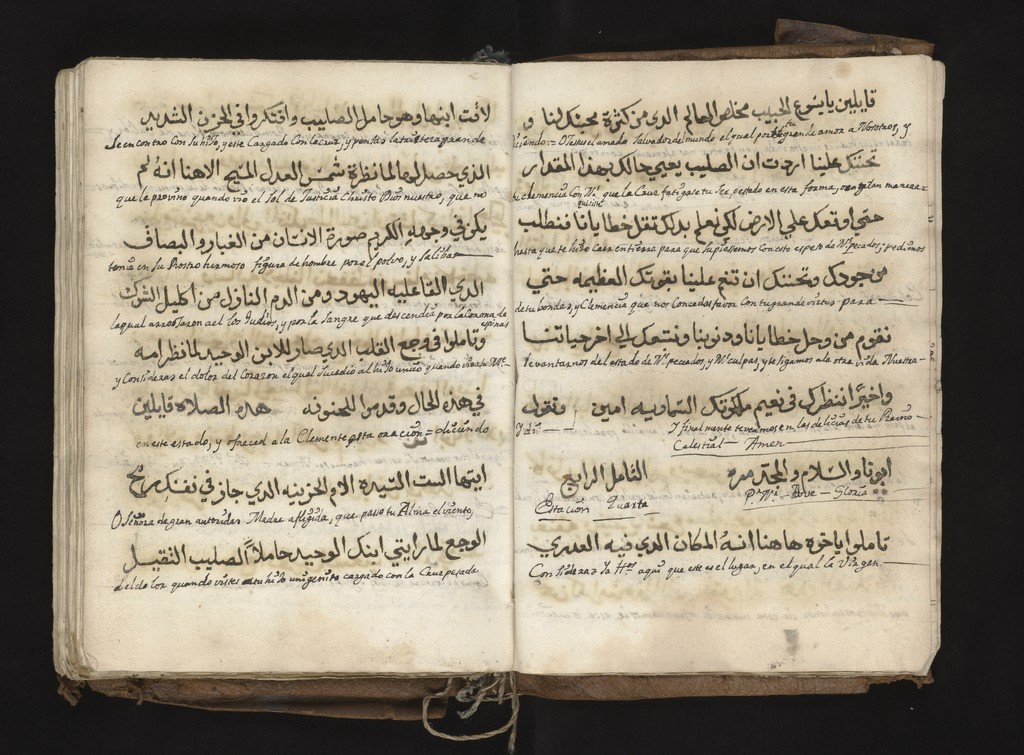 قايلين يا يسوع الحبيب مخلص العالم الدي من كثرة محبتك لنا و
diciendo := O Jesus amado Salvador del mundo el qual por tu grande amor a Nosotros, y
تحننك علينا اردت ان الصليب يعيي حالك بهذا المقدار
tu clemencia con Ns. que la Cruz fatigase tu ser, pesado en esta forma,
حتي اوقعك علي الارض لكي نعلم بدلك تقل خطايانا فنطلب
hasta que te hizo caer en tierra para que supiessemos con esto el peso de Ns. pecados; pedimos
من جودك وتحننك ان تنعم علينا بقوتك العظيمه حتي
de tu bondad, y Clemencia que nos Concedas favor con tu grande virtud para
نقوم من وحل خطايانا ودنوبنا ونتبعك الي اخر حياتنا
levantarnos del estado de Ns. pecados, y Ns. culpas, y te sigamos a la otra vida Nuestra
واخيرًا ننظرك في نعيم ملكوتك السماويه امين ونقول
Y finalmente te veamos en las delicias de tu Reyno
Celestial — Amen
ابونا والسلام والمجد مره التامل الرابع
Pe. No. — Ave — Gloria
Estacion Quarta
تاملوا ياخوه هاهنا انه المكان الدي فيه العدري
Considerad Ya Hos. aqui que este es el lugar, en el qual la Virgen
لاقت ابنها وهو حامل الصليب وافتكروا في الحزن الشديد
se encontro con su hijo, y este Cargado con la cruz, y pensad la tristeza grande
الذي حصل لها لما نظرة شمس العدل المسيح الاهنا انه لم
que le provino quando vio el Sol de Justicia Christo Dios nuestro, que no
يكن في وجهه الكريم صورة الانسان من الغبار والبصاق
tenia en su Rostro hermoso figura de hombre por el polvo, y salibas
الدي القا عليه اليهود ومن الدم النازل من اكليل الشوك
la qual arrojaron a el los Judios, y por la sangre que descendia por la Corona de
espinas
وتاملوا في وجع القلب الدي صار للابن الوحيد لما نظر امه
y Considerad el dolor del Corazon el qual sucedio al hijo unico quando vio a su Me.
في هذه الحال وقدموا للحنونه هده الصلاة قايلين
en este estado, y ofreced a la Clemente esta oracion = diciendo
ايتها الست السيده الام الحزينه الدي جاز في نفسك رمح
O Señora de gran autoridad Madre afligida, que passo tu Alma el viento,
الوجع لما رايتي ابنك الوحيد حاملاً الصليب التقيل
del dolor quando vistes a tu hijo unigenito cargado con la Cruz pesada